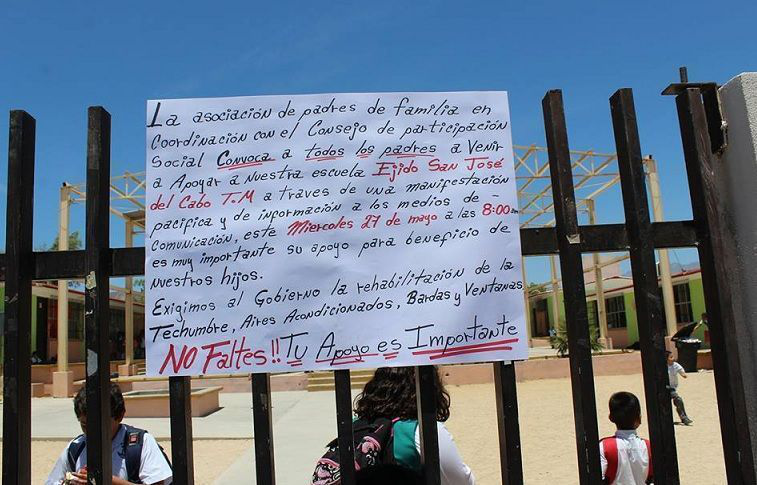 La asociación de padres de familia en
Coordinación con el Consejo de participación
Social Convoca a todos los padres a Venir
a Apoyar a Nuestra escuela Ejido San José
del Cabo T.M a traves de una manifestación
pacifica y de información a los medios de -
Comunicación, este Miercoles 27 de mayo a las 8:00am
es muy importante su apoyo para beneficio de
Nuestros hijos.
Exigimos al Gobierno la rehabilitación de la
Techumbre, Aires Acondicionados, Bardas y Ventanas
NO Faltes!! Tu Apoyo es Importante